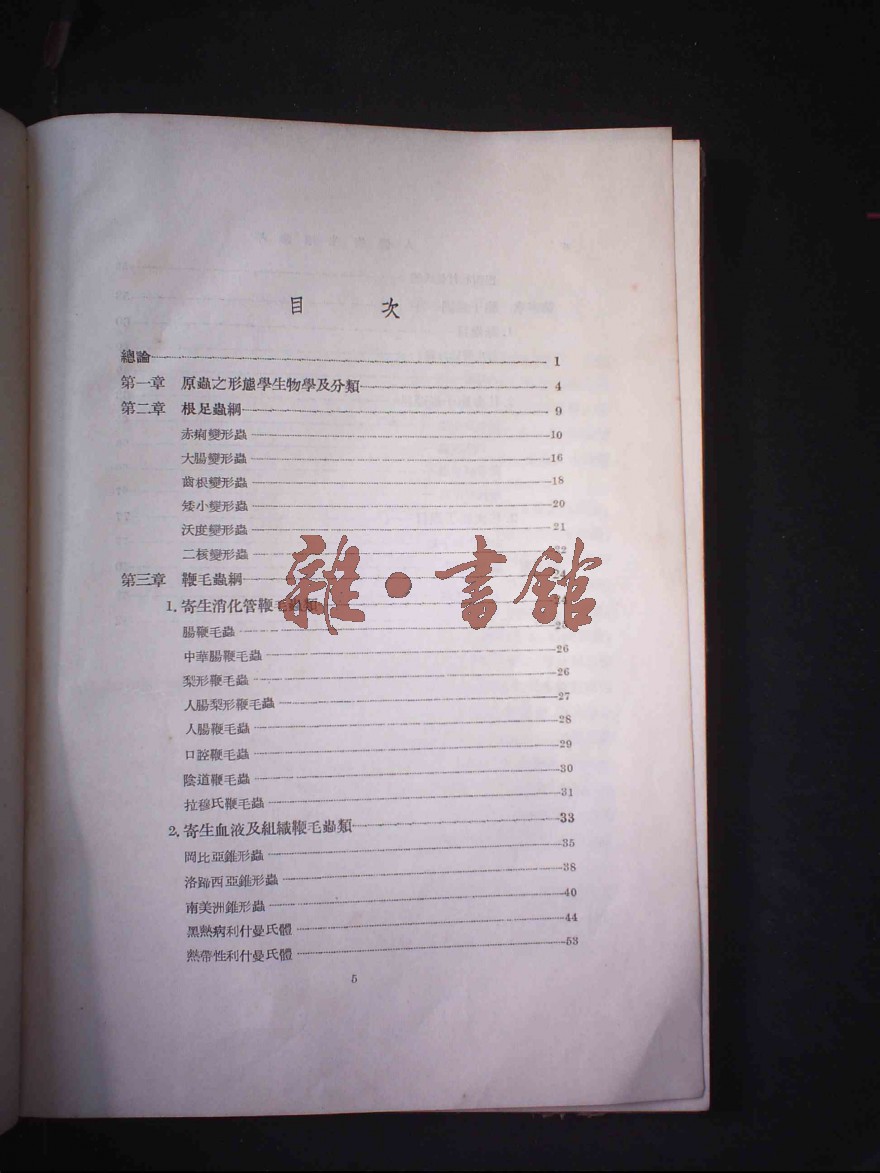 目 次
總論 1
第一章 原蟲之形態學生物學及分類 4
第二章 根足蟲綱 9
赤痢變形蟲 10
大腸變形蟲 16
齒根變形蟲 18
矮小變形蟲 20
沃度變形蟲 21
二核變形蟲 22
第三章 鞭毛蟲綱
雜·書館
1. 寄生消化管鞭毛蟲類
腸鞭毛蟲
中華腸鞭毛蟲 26
梨形鞭毛蟲 26
人腸梨形鞭毛蟲 27
人腸鞭毛蟲 28
口腔鞭毛蟲 29
陰道鞭毛蟲 30
拉穆氏鞭毛蟲 31
2. 寄生血液及組織鞭毛蟲類 33
岡比亞錐形蟲 35
洛蹄西亞錐形蟲 38
南美洲錐形蟲 40
黑熱病利什曼氏體 44
熱帶性利什曼氏體 53
5